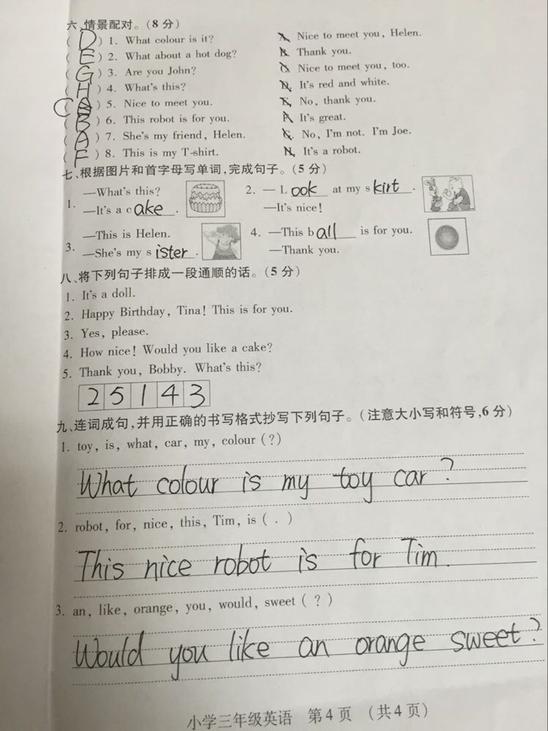 六、情景配对。(8 分)
( D ) 1. What colour is it? A. Nice to meet you, Helen.
( E ) 2. What about a hot dog? B. Thank you.
( G ) 3. Are you John? C. Nice to meet you, too.
( H ) 4. What's this? D. It's red and white.
( C ) 5. Nice to meet you. E. No, thank you.
( B ) 6. This robot is for you. F. It's great.
( A ) 7. She's my friend, Helen. G. No, I'm not. I'm Joe.
( F ) 8. This is my T-shirt. H. It's a robot.
七、根据图片和首字母写单词,完成句子。(5 分)
1. —What's this? 2. — Look at my skirt .
—It's a cake . —It's nice!
3. —This is Helen. 4. —This ball is for you.
—She's my sister . —Thank you.
八、将下列句子排成一段通顺的话。(5 分)
1. It's a doll.
2. Happy Birthday, Tina! This is for you.
3. Yes, please.
4. How nice! Would you like a cake?
5. Thank you, Bobby. What's this?
2 5 1 4 3
九、连词成句,并用正确的书写格式抄写下列句子。(注意大小写和符号,6 分)
1. toy, is, what, car, my, colour (?)
What colour is my toy car?
2. robot, for, nice, this, Tim, is ( . )
This nice robot is for Tim.
3. an, like, orange, you, would, sweet ( ? )
Would you like an orange sweet?
小学三年级英语 第4页 (共4页)